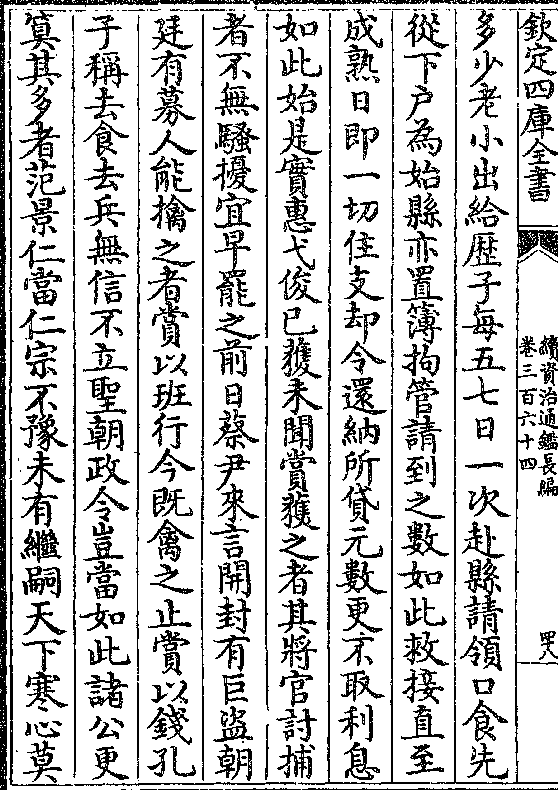 欽定四庫全書
續資治通鑑長編
卷三百六十四
四十八
多少老小出給歴子每五七日一次赴縣請領口食先
從下户為始縣亦置簿拘管請到之數如此救接直至
成熟日即一切住支却令還納所貸元數更不取利息
如此始是實惠弋俊已獲未聞賞獲之者其將官討捕
者不無騷擾宜早罷之前日蔡尹來言開封有巨盜朝
廷有募人能擒之者賞以班行今既禽之止賞以錢孔
子稱去食去兵無信不立聖朝政令豈當如此諸公更
筭其多者范景仁當仁宗不豫未有繼嗣天下寒心莫